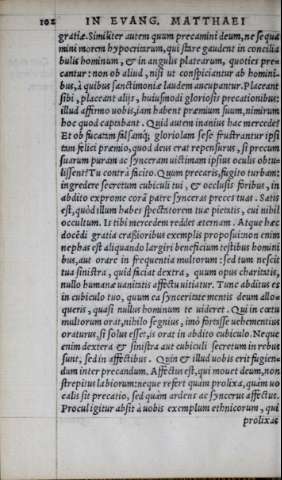 102 IN EVANG. MATTHAEI
gratiæ. Similiter autem quum precamini deum, ne sequa
mini morem hypocritarum, qui stare gaudent in concilia
bulis hominum, & in angulis platearum, quoties pre=
cantur: non ob aliud, nisi ut conspiciantur ab homini=
bus, à quibus sanctimoniæ laudem aucupantur. Placeant
sibi, placeant alijs, huiusmodi gloriosis precationibus:
illud affirmo uobis, iam habent præmium suum, nimirum
hoc quod captabant. Quid autem inanius hac mercede?
Et ob fucatam falsamq́; gloriolam sese frustrantur ipsi
tam felici præmio, quod deus erat repensurus, si precum
suarum puram ac synceram uictimam ipsius oculis obtu=
lissent? Tu contrà facito. Quum precaris, fugito turbam:
ingredere secretum cubiculi tui, & occlusis foribus, in
abdito exprome corā patre synceras preces tuas. Satis
est, quòd illum habes spectatorem tuæ pietatis, cui nihil
occultum. Is tibi mercedem reddet æternam. Atque hæc
docēdi gratia crassioribus exemplis proposui: non enim
nephas est aliquando largiri beneficium testibus homini
bus, aut orare in frequentia multorum: sed tum nesciit
tua sinistra, quid faciat dextra, quum opus charitatis,
nullo humanæ uanitatis affectu uitiatur. Tunc abditus es
in cubiculo tuo, quum ea synceritate mentis deum allo=
queris, quasi nullus hominum te uideret. Qui in cœtu
multorum orat, nihilo segnius, imò fortasse uehementius
oraturus, si solus esset, is orat in abdito cubiculo. Neque
enim dextera & sinistra aut cubiculi secretum in rebus
sunt, sed in affectibus. Quin & illud uobis erit fugien=
dum inter precandum. Affectus est, qui mouet deum, non
strepitus labiorum: neque refert quàm prolixa, quàm uo
calis sit precatio, sed quàm ardens ac syncerus affectus.
Procul igitur absit à uobis exemplum ethnicorum, qui
prolixas